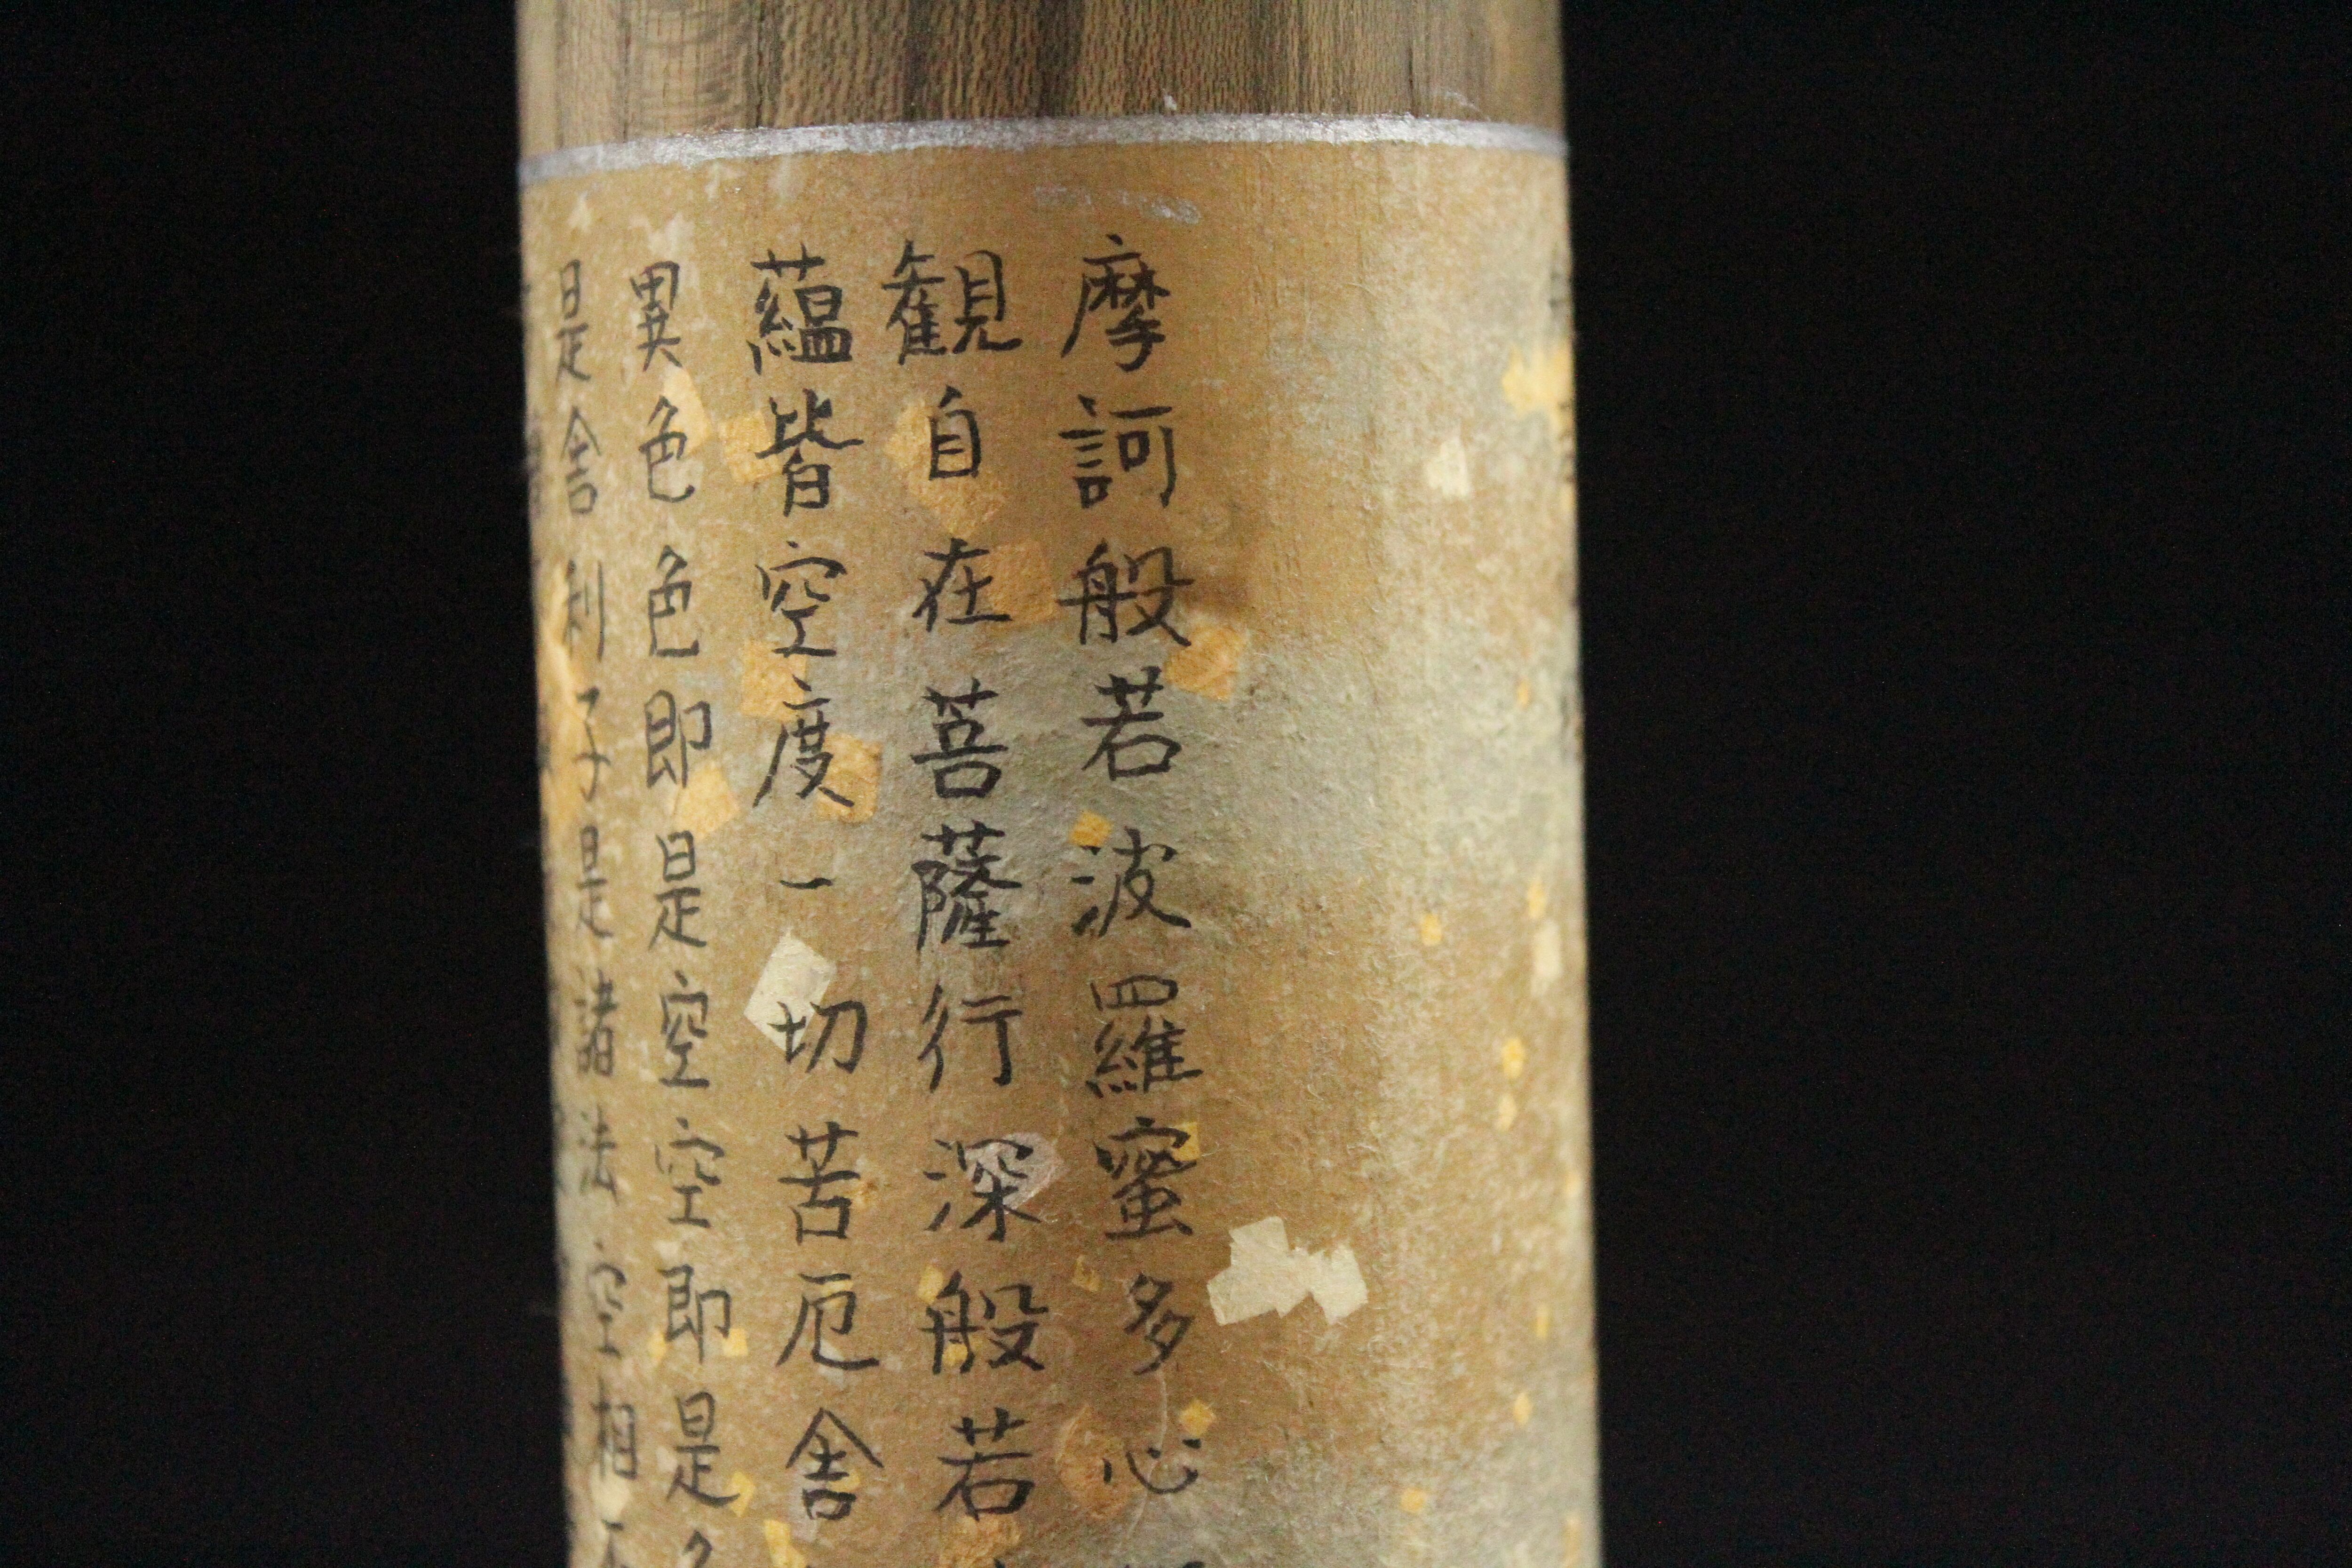 摩訶般若波羅蜜多心
観自在菩薩行深般若
蘊皆空度一切苦厄舎
異色色即是空空即是
是舎利子是諸法空相